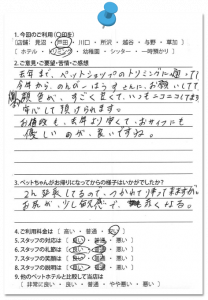 1. 今回のご利用(〇印を)
[店舗: 見沼・戸田・川口・所沢・越谷・与野・草加]
[ホテル・トリミング・幼稚園・シッター・一時預かり]
2. ご意見・ご要望・苦情・ご感想
去年まで、ペットショップのトリミングに通って
今年から、のんびーはうすさんに、お願いしてて
感じが、すごく良くて、いつもニコニコしてま
安心して預けられます。
お値段も、去年より安くて、おサイフにも
優しいのが、良いですね。
3. ペットちゃんがお帰りになってからの様子はいかがでしたか?
2ん発毛してるので、つかれて帰ってきますが、
お尻が、少し敏感で、赤くなる。
4. ご利用料金は [高い・普通・安い]
5. スタッフの対応は [良い・普通・悪い]
6. スタッフの礼節は [良い・普通・悪い]
7. スタッフの笑顔は [良い・普通・悪い]
8. スタッフの説明は [良い・普通・悪い]
9. 他のペットホテルと比較して当店は
[非常に良い・良い・普通・やや悪い・悪い]